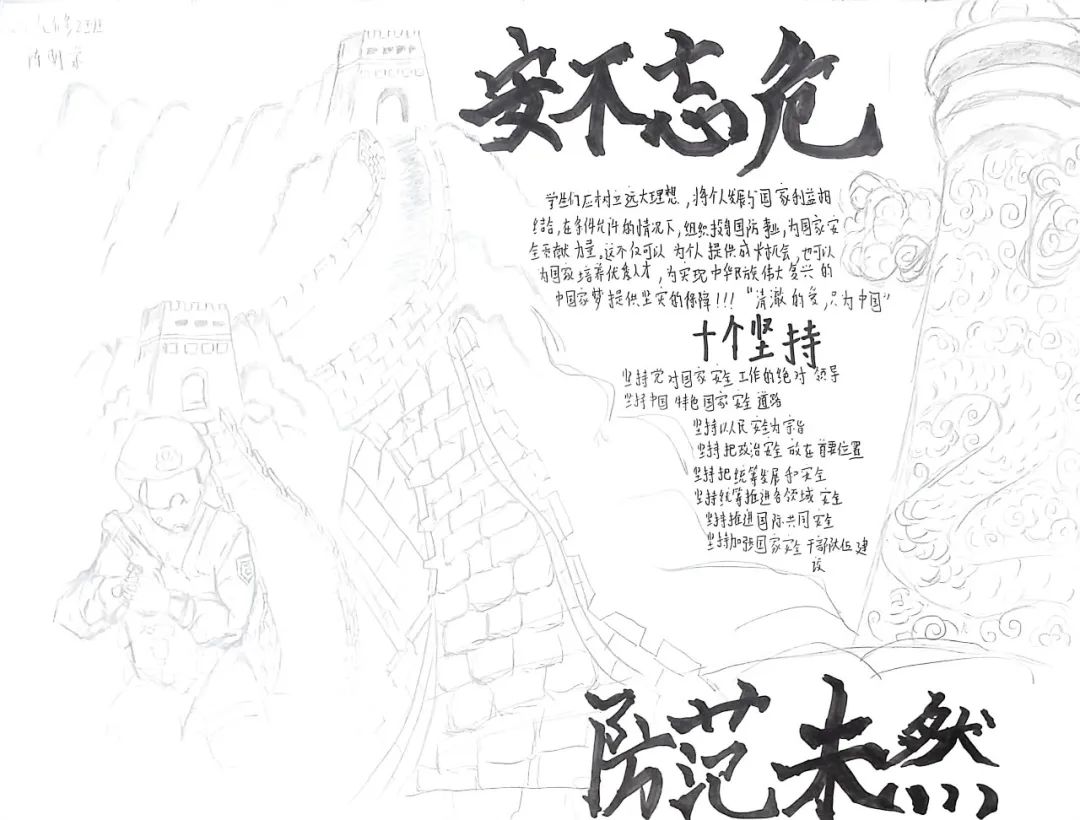 安不忘危
学生们应树立远大理想，将个人发展与国家利益相
结合，在条件允许的情况下，组织投身国防事业，为国家安
全贡献力量。这不仅可以为个人提供成长机会，也可以
为国家培养优秀人才，为实现中华民族伟大复兴的
中国家梦提供坚实的保障！！！“清澈的爱，只为中国”
十个坚持
坚持党对国家安全工作的绝对领导
坚持中国特色国家安全道路
坚持以人民安全为宗旨
坚持把政治安全放在首要位置
坚持把统筹发展和安全
坚持统筹推进各领域安全
坚持推进国际共同安全
坚持加强国家安全干部队伍建
设
防范未然